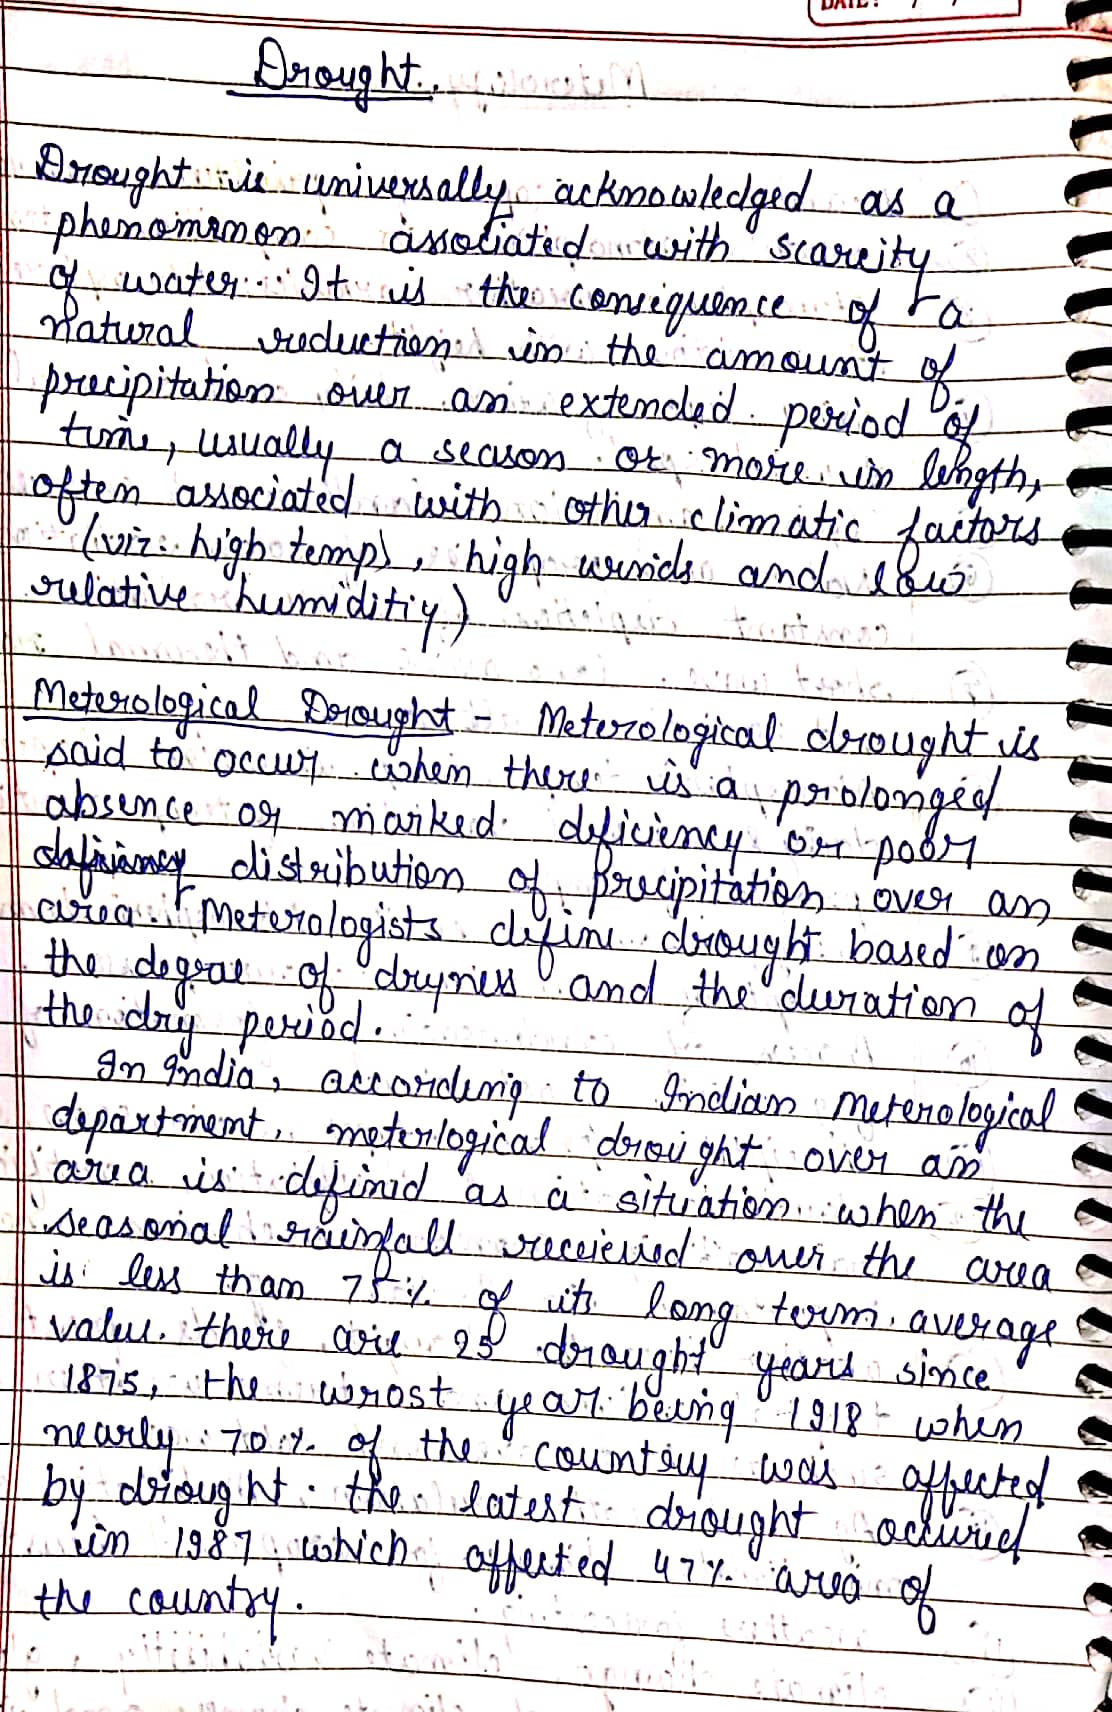 DATE: / /
Drought.
Drought is universally acknowledged as a
phenomenon associated with scarcity
of water. It is the consequence of a
natural reduction in the amount of
precipitation over an extended period of
time, usually a season or more in length,
often associated with other climatic factors
(viz. high temp), high winds and low
relative humiditiy)
Meterological Drought - Meterological drought is
said to occur when there is a prolonged
absence or marked deficiency or poor
deficiency distribution of precipitation over an
area. Meterologists define drought based on
the degree of dryness and the duration of
the dry period.
In India, according to Indian meterological
department, meterlogical drought over an
area is defined as a situation when the
seasonal rainfall receieved over the area
is less than 75% of its long term average
value. there are 25 drought years since
1875, the wrost year being 1918 when
nearly 70% of the country was affected
by drought. the latest drought occured
in 1987 which affected 47% area of
the country.